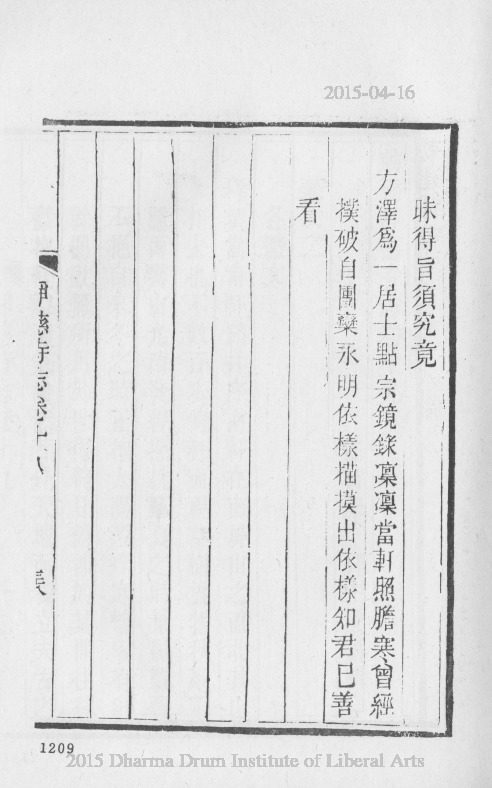 2015-04-16
昧得旨須究竟
方澤爲一居士點宗鏡錄凜凜當軒照膽寒曾經
撲破自團欒永明依樣描摸出依樣知君已善
看
淨慈寺志卷十八
1209
2015 Dharma Drum Institute of Liberal Arts